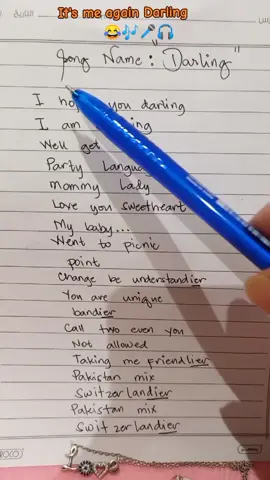 It's me again Darling
😂🎶🎤🎧
Song Name: "Darling"
I you darling
I am
Well get
Party
Mommy Lady
Love you sweetheart
My baby...
Went to picnic
point
Change be understandier
You are unique
bandier
Call two even you
Not allowed
Taking me friendlier
Pakistan mix
Switzerlandier
Pakistan mix
Switzerlandier